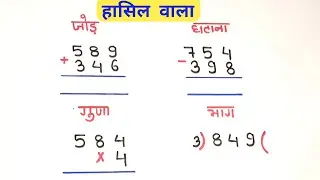 हासिल वाला
जोड़
घटाना
589
+ 346
754
- 398
गुणा
भाग
584
× 4
3) 849 (